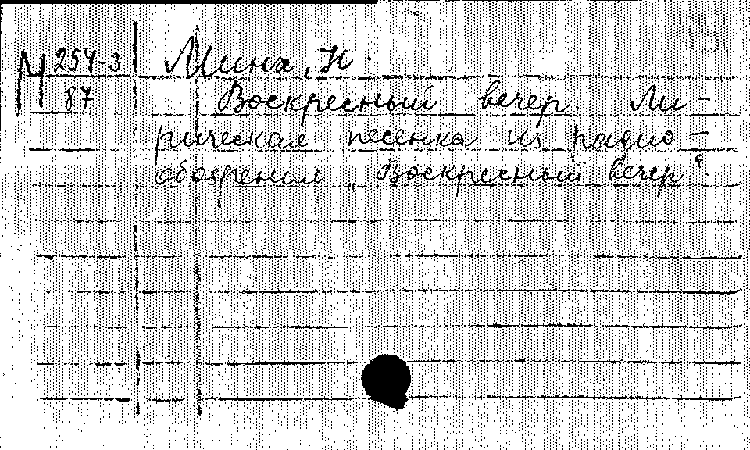 М 254-3
87
Минх, Н.
Воскресный вечер. Ли-
рическая песенка из радио-
обозрения „Воскресный вечер“.